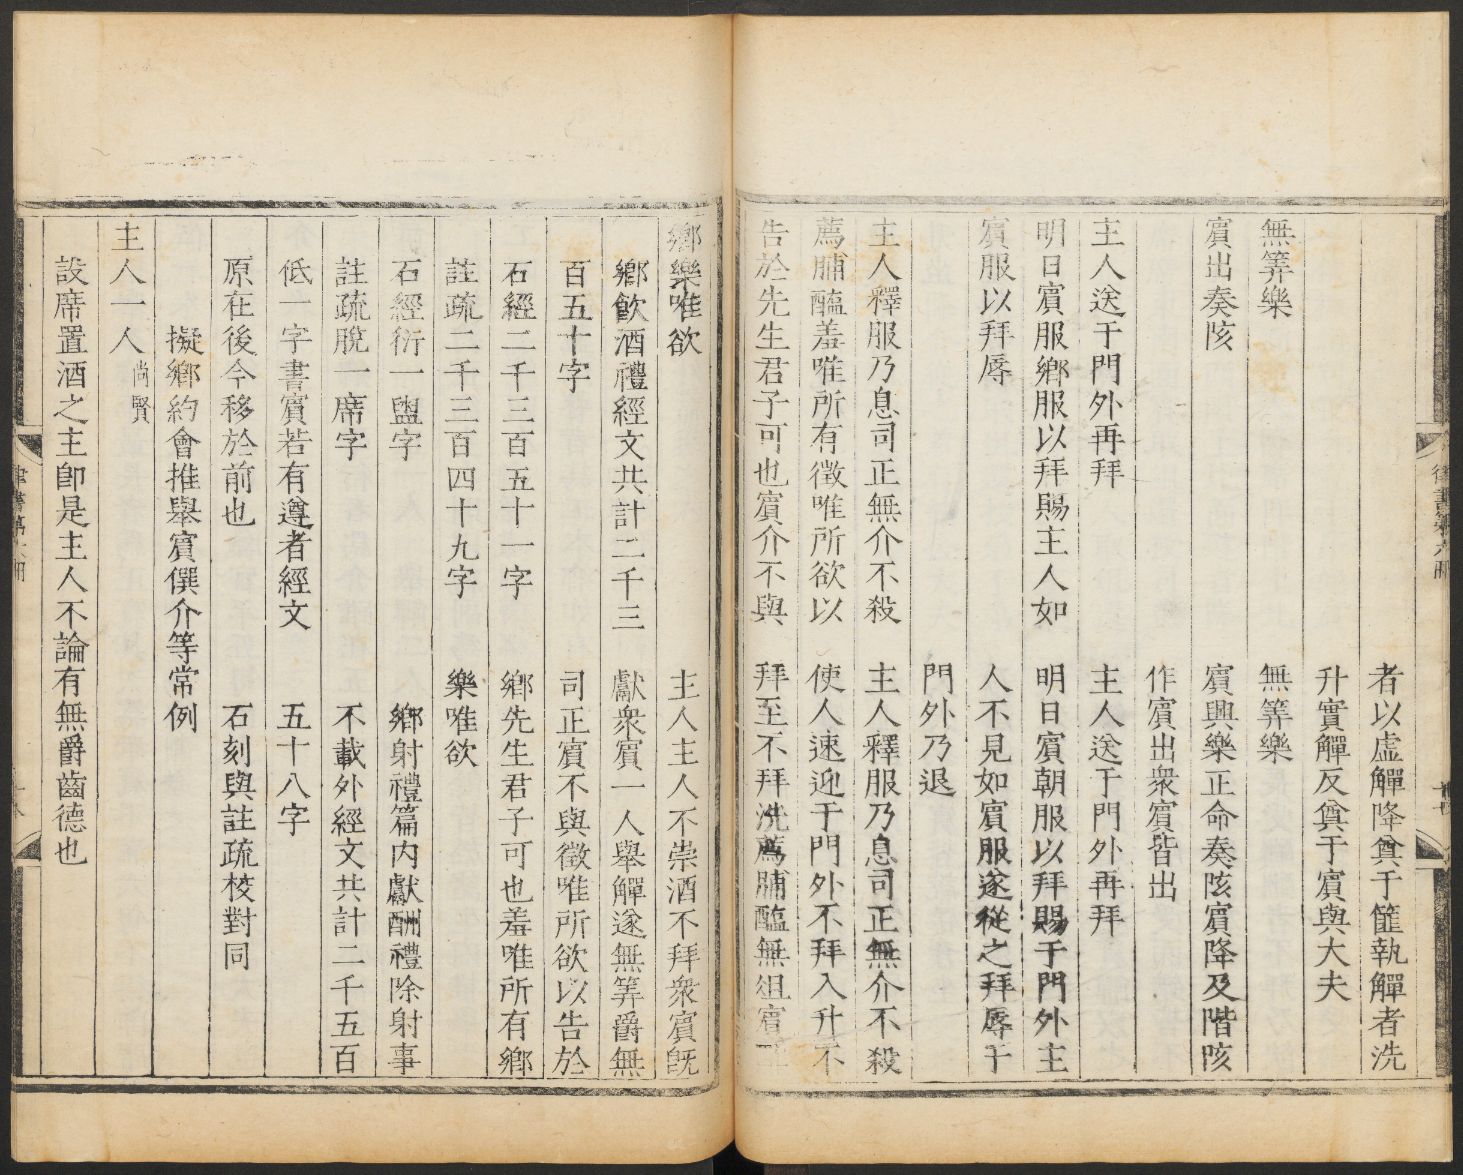 者以虛觶降奠于篚執觶者洗
升實觶反奠于賓與大夫
無筭樂　無筭樂
賓出奏陔　賓與樂正命奏陔賓降及階陔
作賓出衆賓皆出
主人送于門外再拜　主人送于門外再拜
明日賓服鄉服以拜賜主人如　明日賓朝服以拜賜于門外主
賓服以拜辱　人不見如賓服遂從之拜辱于
門外乃退
主人釋服乃息司正無介不殺　主人釋服乃息司正無介不殺
薦脯醢羞唯所有徵唯所欲以　使人速迎于門外不拜入升不
告於先生君子可也賓介不與　拜至不拜洗薦脯醢無俎賓
鄉樂唯欲　主人主人不崇酒不拜衆賓旣
鄉飮酒禮經文共計二千三　獻衆賓一人舉觶遂無筭爵無
百五十字　司正賓不與徵唯所欲以告於
石經二千三百五十一字　鄉先生君子可也羞唯所有鄉
註疏二千三百四十九字　樂唯欲
石經衍一盥字　鄉射禮篇內獻酬禮除射事
註疏脫一席字　不載外經文共計二千五百
低一字書賓若有遵者經文　五十八字
原在後今移於前也　石刻與註疏校對同
擬鄉約會推舉賓僎介等常例
主人一人尚賢
設席置酒之主卽是主人不論有無爵齒德也
律書第六冊